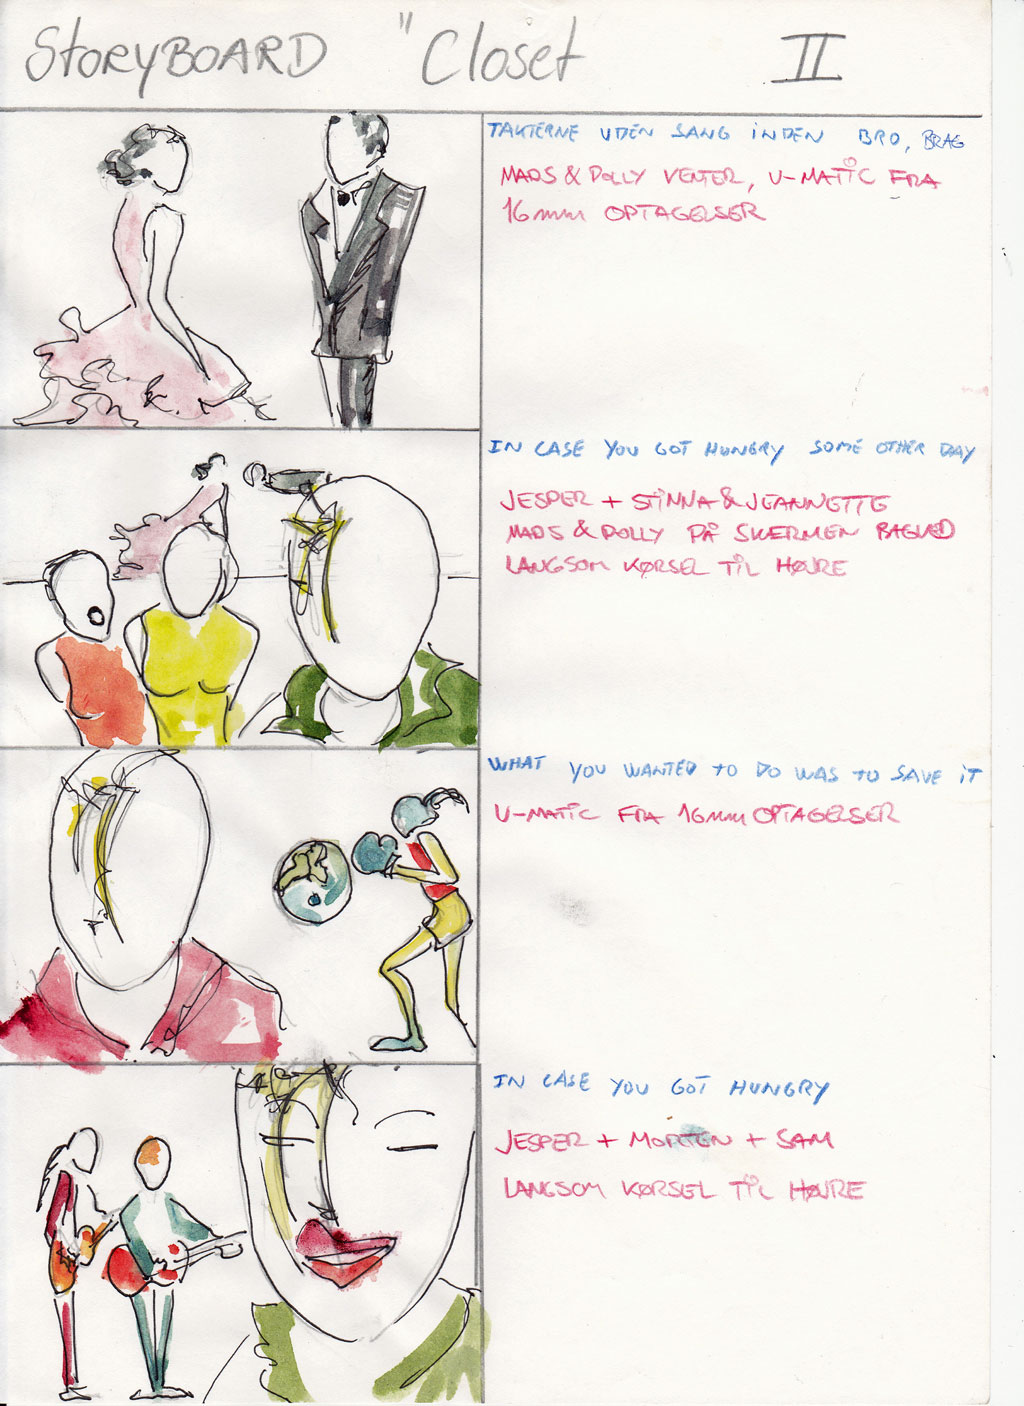 STORYBOARD "Closet II
TAKTERNE UDEN SANG INDEN BRO, BRAG
MADS & DOLLY VENTER, U-MATIC FRA
16mm OPTAGELSER
IN CASE YOU GOT HUNGRY SOME OTHER DAY
JESPER + STINNA & JEANNETTE
MADS & DOLLY PÅ SKÆRMEN BAGVED
LANGSOM KØRSEL TIL HØJRE
WHAT YOU WANTED TO DO WAS TO SAVE IT
U-MATIC FRA 16mm OPTAGELSER
IN CASE YOU GOT HUNGRY
JESPER + MORTEN + SAM
LANGSOM KØRSEL TIL HØJRE